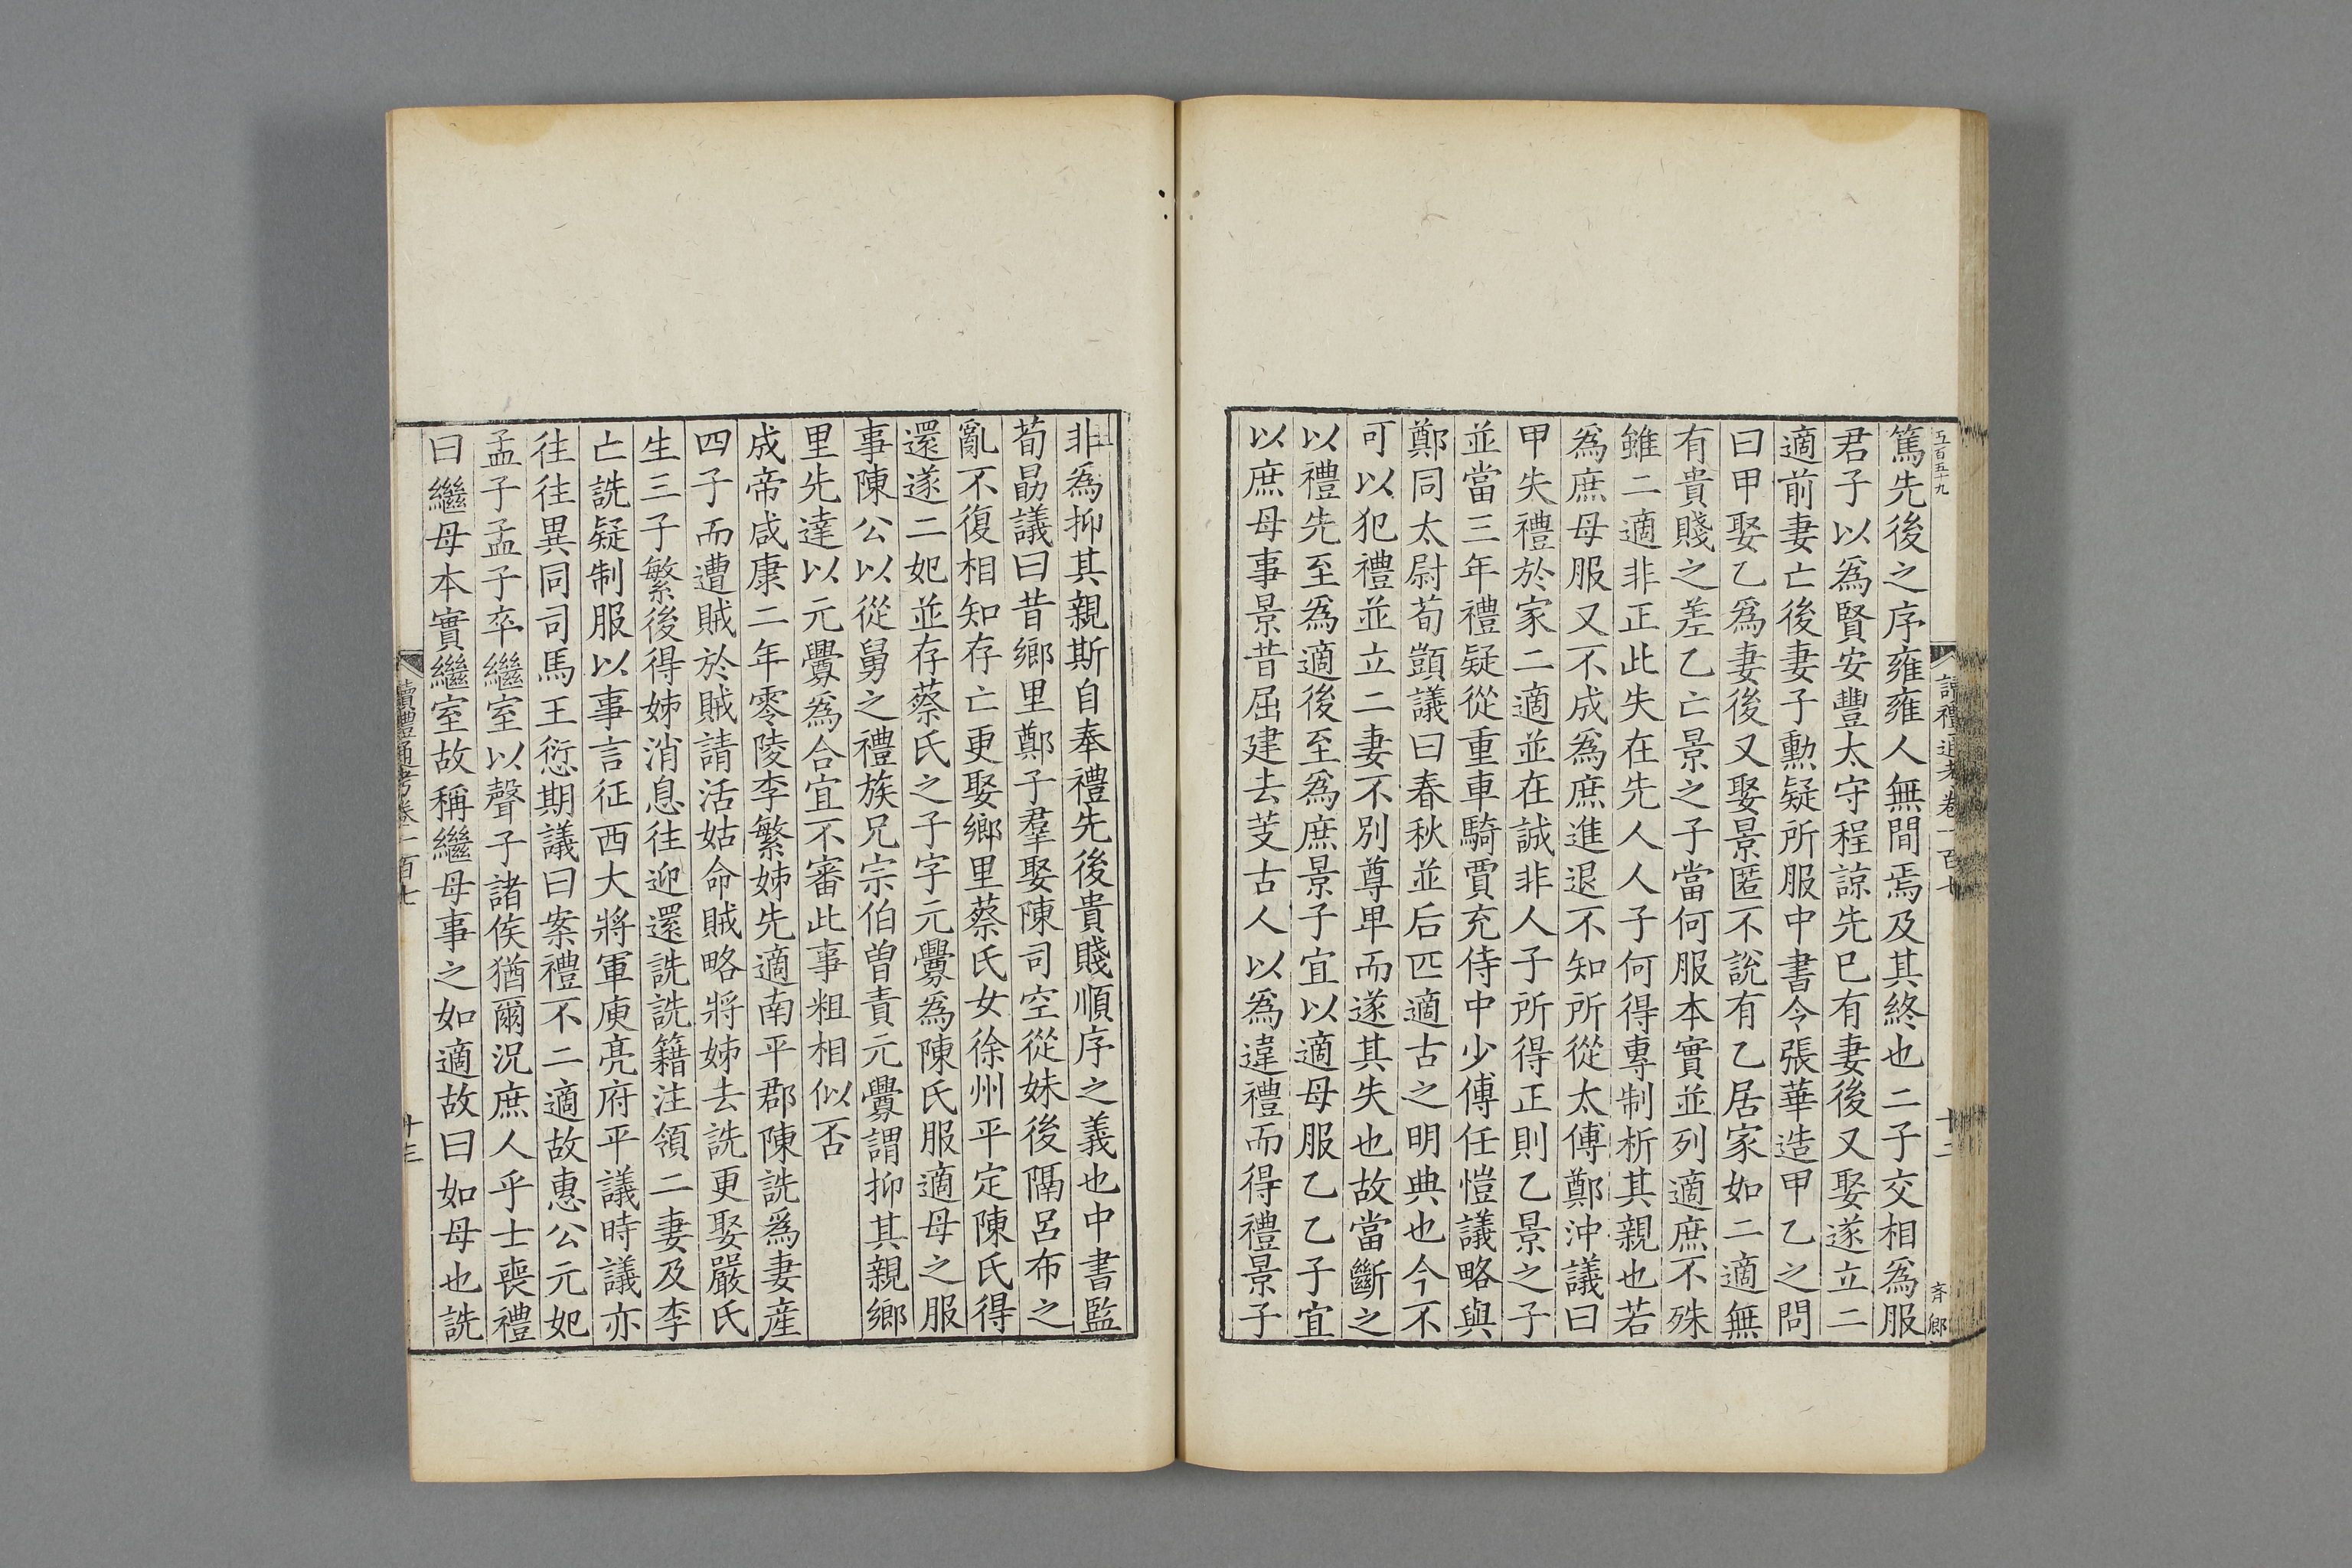 五百五十九
讀禮通考卷一百七
十二
斉卿
篤先後之序雍雍人無間焉及其終也二子交相爲服
君子以爲賢安豐太守程諒先巳有妻後又娶遂立二
適前妻亡後妻子勲疑所服中書令張華造甲乙之問
曰甲娶乙爲妻後又娶景匿不說有乙居家如二適無
有貴賤之差乙亡景之子當何服本實並列適庶不殊
雖二適非正此失在先人人子何得專制析其親也若
爲庶母服又不成爲庶進退不知所從太傅鄭沖議曰
甲失禮於家二適並在誠非人子所得正則乙景之子
並當三年禮疑從重車騎賈充侍中少傅任愷議略與
鄭同太尉荀顗議曰春秋並后匹適古之明典也今不
可以犯禮並立二妻不別尊卑而遂其失也故當斷之
以禮先至爲適後至爲庶景子宜以適母服乙乙子宜
以庶母事景昔屈建去芰古人以爲違禮而得禮景子
非爲抑其親斯自奉禮先後貴賤順序之義也中書監
荀勗議曰昔鄉里鄭子羣娶陳司空從妹後隔呂布之
亂不復相知存亡更娶鄉里蔡氏女徐州平定陳氏得
還遂二妃並存蔡氏之子字元釁爲陳氏服適母之服
事陳公以從舅之禮族兄宗伯曾責元釁謂抑其親鄉
里先達以元釁爲合宜不審此事粗相似否
成帝咸康二年零陵李繁姊先適南平郡陳詵爲妻産
四子而遭賊於賊請活姑命賊略將姊去詵更娶嚴氏
生三子繁後得姊消息往迎還詵詵籍注領二妻及李
亡詵疑制服以事言征西大將軍庾亮府平議時議亦
往往異同司馬王愆期議曰案禮不二適故惠公元妃
孟子孟子卒繼室以聲子諸侯猶爾況庶人乎士喪禮
曰繼母本實繼室故稱繼母事之如適故曰如母也詵
讀禮通考卷一百七
十三